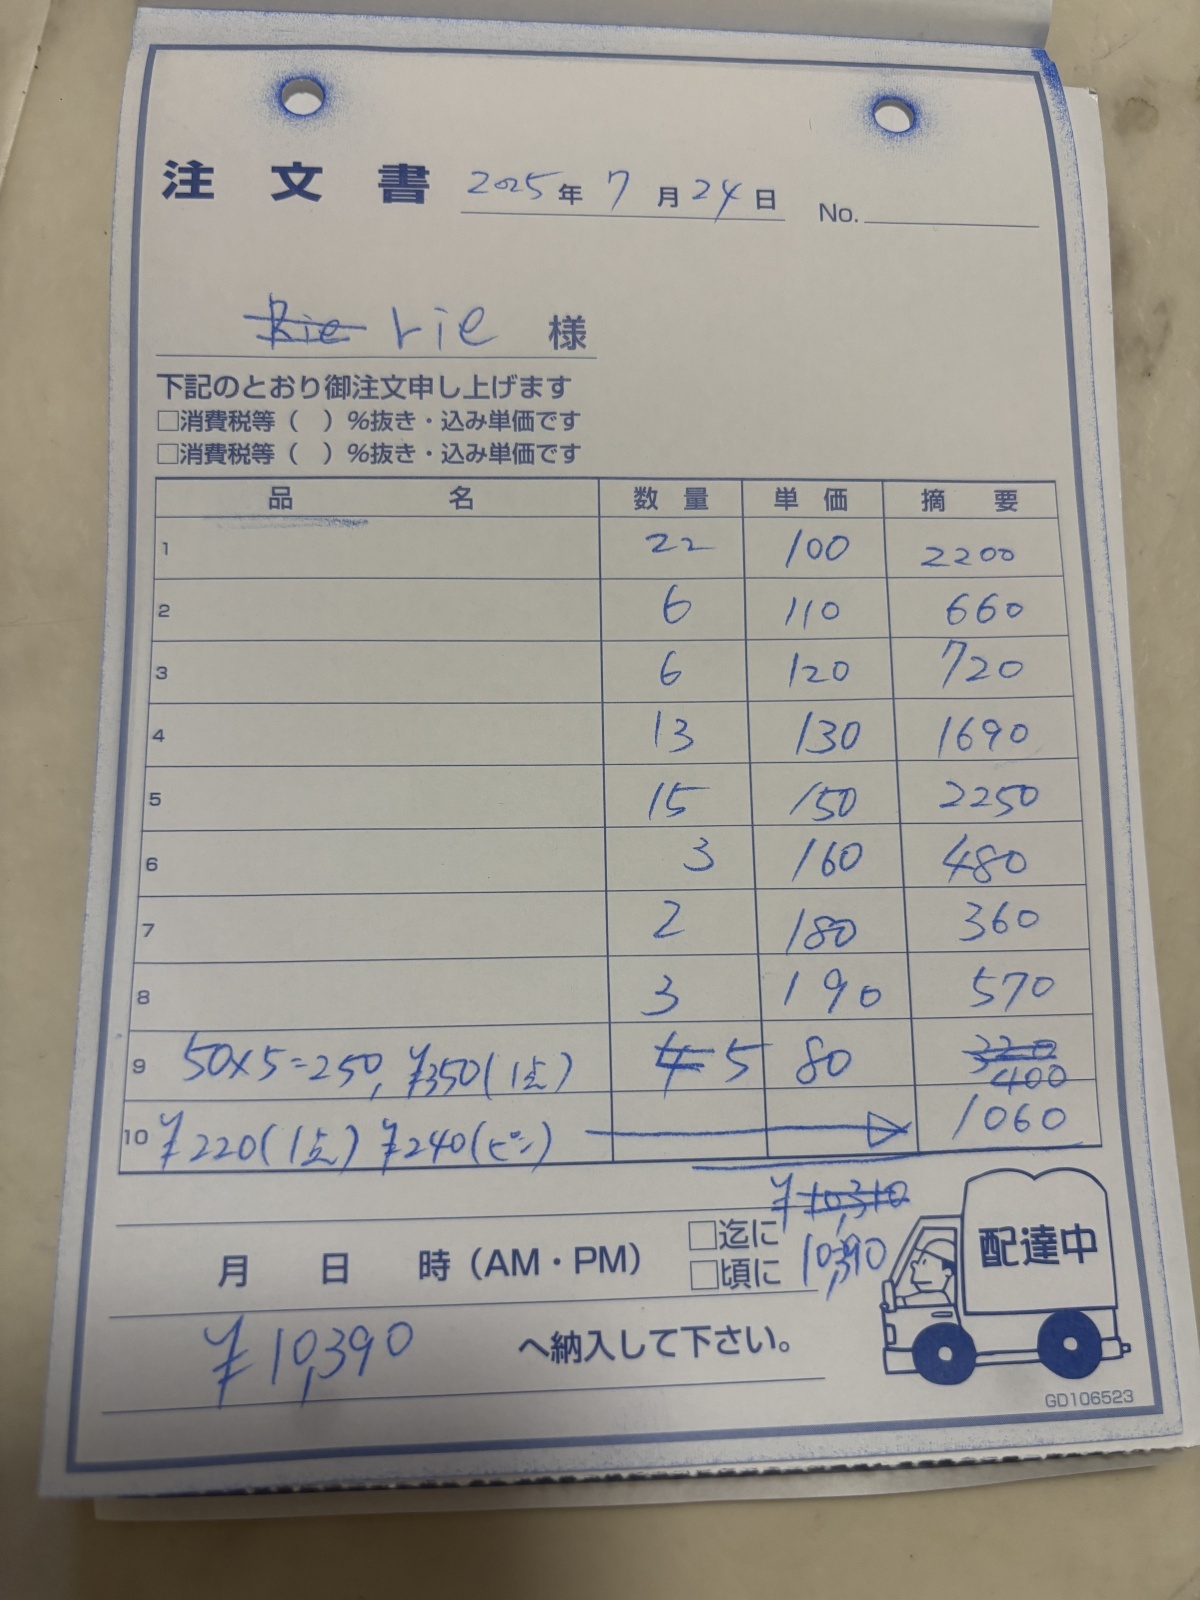 注文書 2025年7月24日 No.
Rie rie 様
下記のとおり御注文申し上げます
□消費税等（ ）％抜き・込み単価です
□消費税等（ ）％抜き・込み単価です
品名 数量 単価 摘要
1 22 100 2200
2 6 110 660
3 6 120 720
4 13 130 1690
5 15 150 2250
6 3 160 480
7 2 180 360
8 3 190 570
9 50×5=250, ¥350(1点) 4 5 80 320 400
10 ¥220(1点) ¥240(ピン) → 1060
¥10,310
□迄に
月 日 時（AM・PM） 10,390
□頃に
配達中
¥10,390 へ納入して下さい。
GD106523